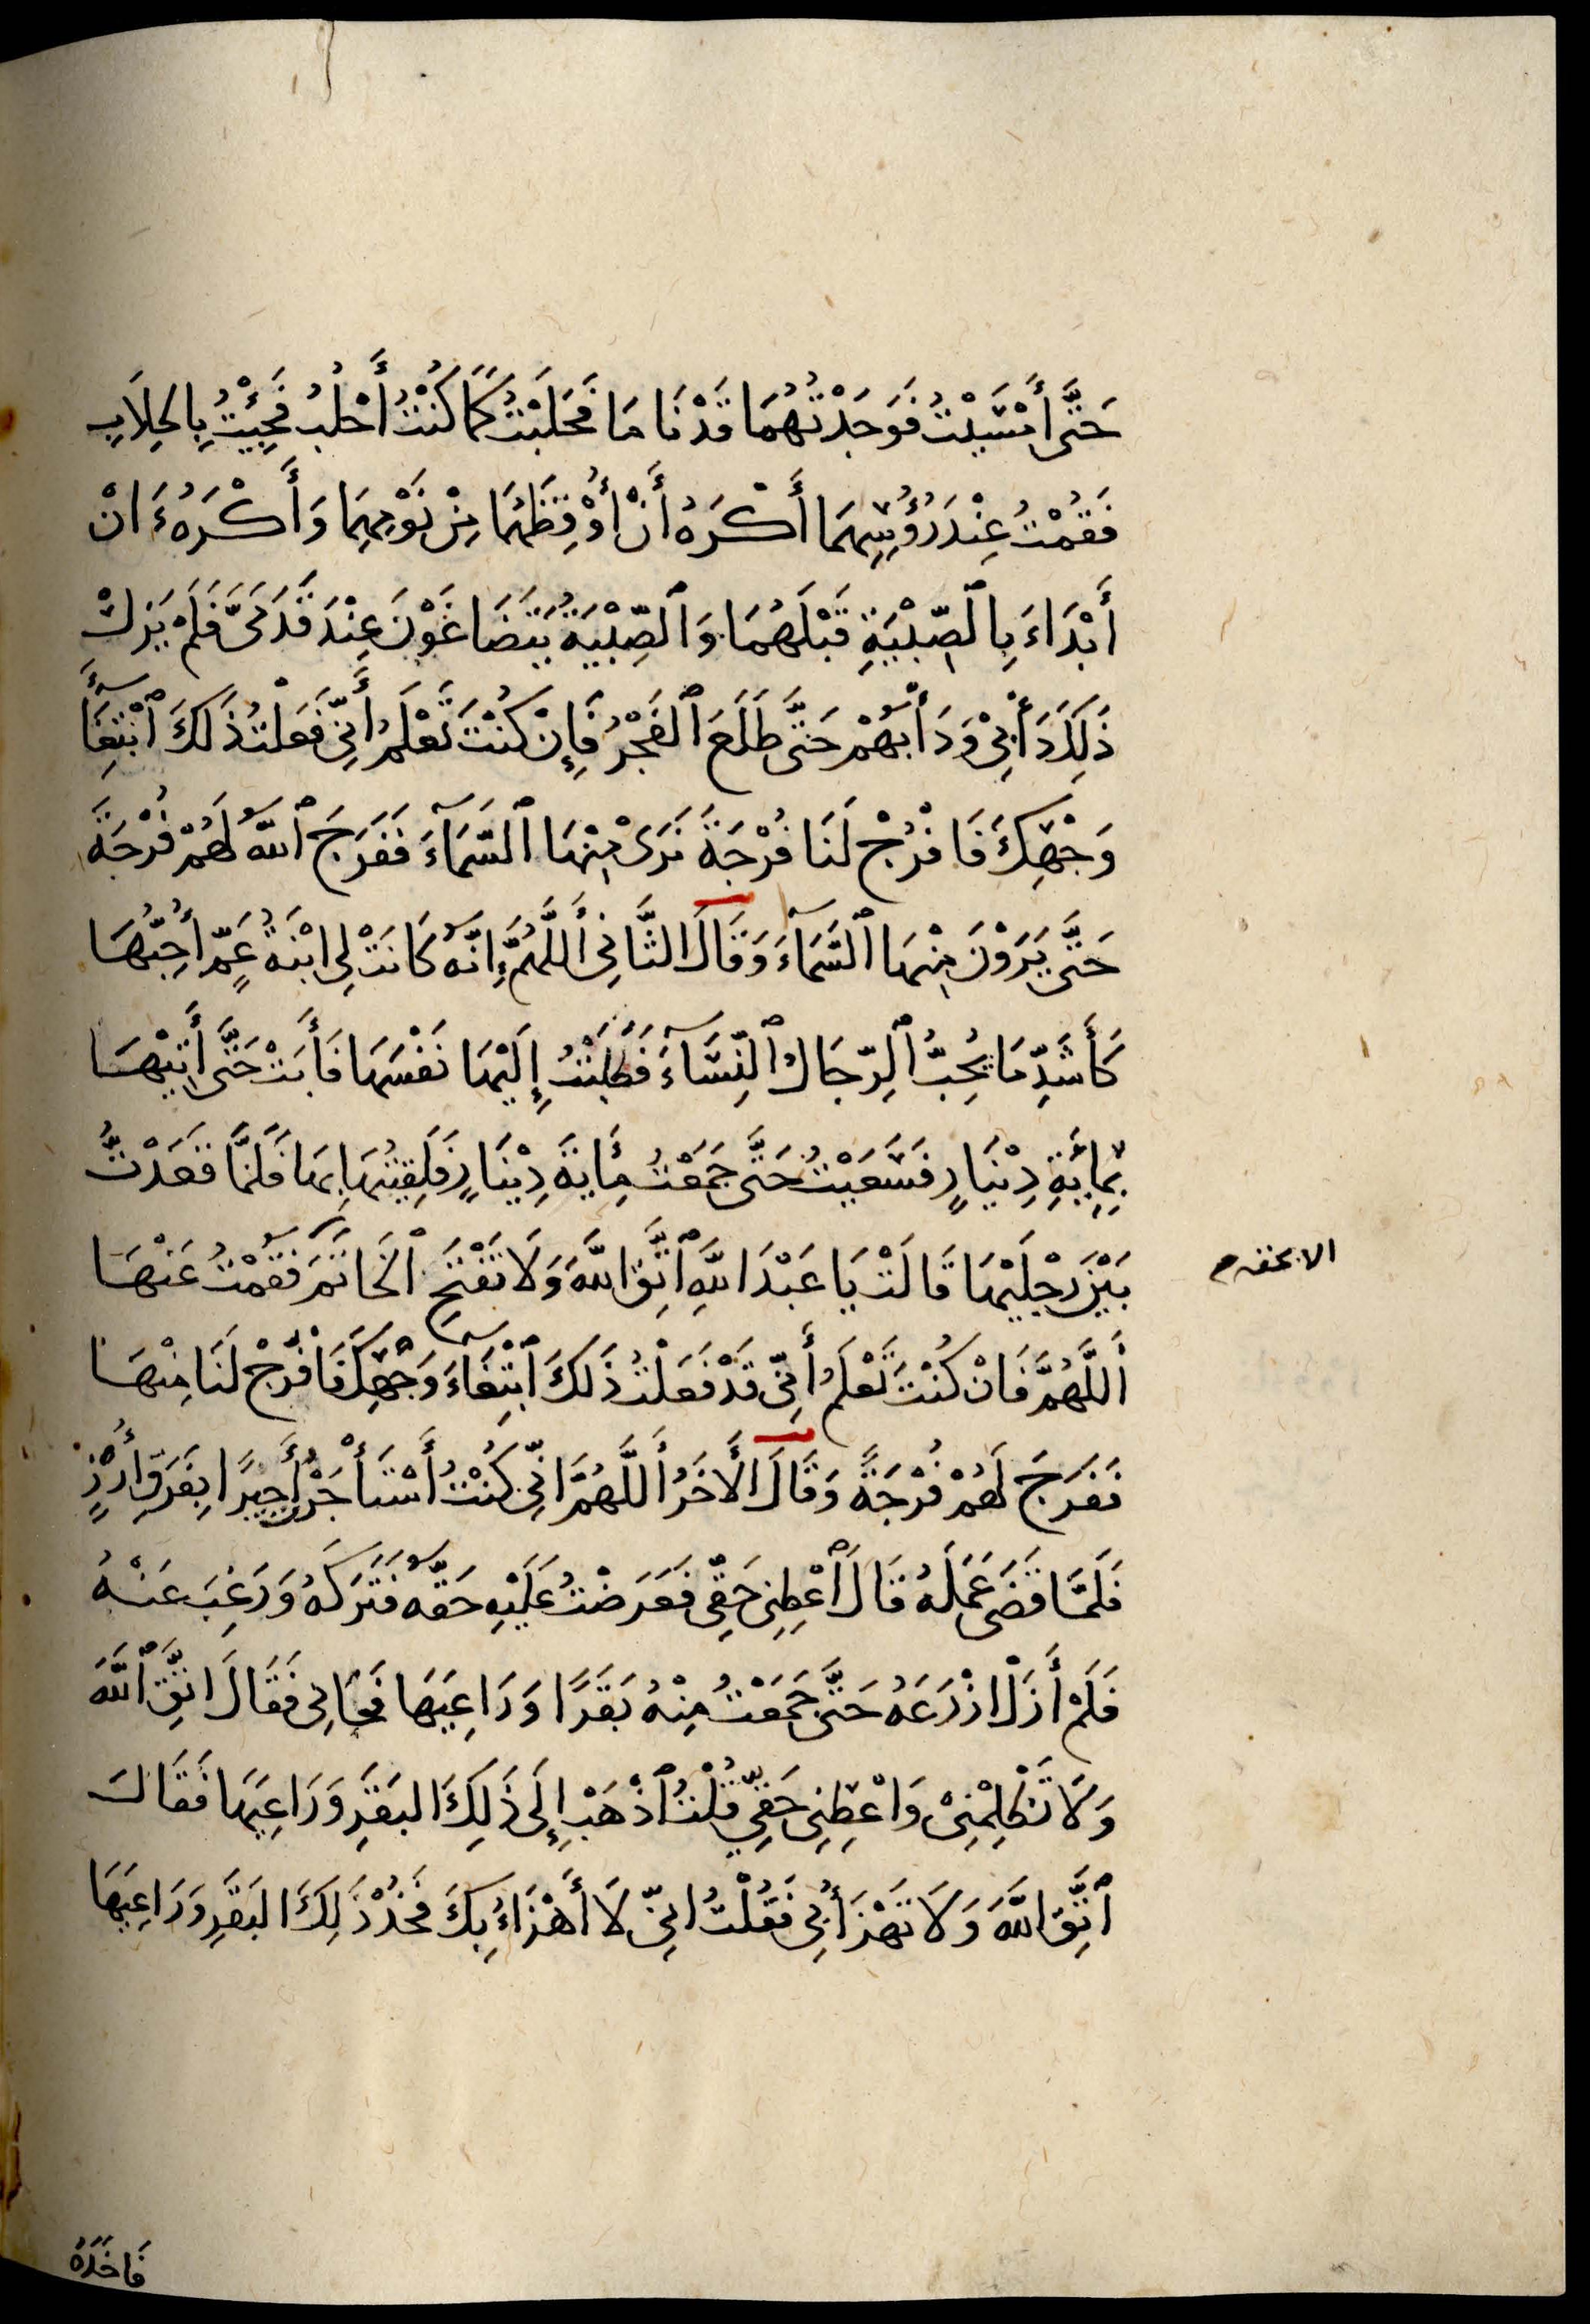 حَتَّى أَمْسَيْتُ فَوَجَدْتُهُمَا قَدْ نَامَا فَحَلَبْتُ كَمَا كُنْتُ أَحْلُبُ فَجِئْتُ بِالحِلَابِ
فَقُمْتُ عِنْدَ رُؤُسِهِمَا أَكْرَهُ أَنْ أُوْقِظَهُمَا مِنْ نَوْمِهِمَا وَأَكْرَهُ ءَانْ
أَبْدَاءَ بِالصِّبْيَةِ قَبْلَهُمَا وَالصِّبْيَةُ يَتَضَاغَوْنَ عِنْدَ قَدَمَىَّ فَلَمْ يَزَلْ
ذَلِكَ دَأْبِىْ وَدَأْبَهُمْ حَتَّى طَلَعَ ٱلفَجْرُ فَإِنْ كُنْتَ تَعْلَمُ أَنِّى فَعَلْتُ ذَلكَ ٱبْتِغَآءَ
وَجْهِكَ فَافْرُجْ لَنَا فُرْجَةً نَرَى مِنْهَا ٱلسَّمَآءَ فَفَرَجَ ٱللّهُ لَهُمْ فُرْجَةً
حَتَّى يَرَوْنَ مِنْهَا ٱلسَّمَآءَ وَقَالَ الثَّانِى أَللَّهُمَّ إِنَّهُ كَانَتْ لِى ابْنَةُ عَمٍّ أُحِبُّهَا
كَأَشَدِّ مَا يُحِبُّ ٱلرِّجَالُ ٱلنِّسَآءَ فَطَلَبْتُ إِلَيْهَا نَفْسَهَا فَأَبَتْ حَتَّى أَتِيْهَا
بِمِايَةِ دِيْنَارٍ فَسَعَيْتُ حَتَّى جَمَعْتُ مِايَةَ دِيْنَارٍ فَلَقِيتُهَا بِهَا فَلَمَّا قَعَدْتُ
بَيْنَ رِجْلَيْهَا قَالَتْ يَا عَبْدَ اللّهِ ٱتَّقِ اللّهَ وَلَا تَفْتَحِ ٱلْخَاتَمَ فَقُمْتُ عَنْهَا
أَللَّهُمَّ فَانْ كُنْتَ تَعْلَمُ أَنِّى قَدْ فَعَلْتُ ذَلكَ ٱبْتِغَآءَ وَجْهِكَ فَافْرُجْ لَنَا مِنْهَا
فَفَرَجَ لَهُمْ فُرْجَةً وَقَالَ الأَخَرُ أَللَّهُمَّ انِّى كُنْتُ أَسْتَأْجَرْتُ أَجِيرًا بِفَرَقِ أَرُزٍّ
فَلَمَّا قَضَى عَمَلَهُ قَالَ ٱعْطِنِى حَقِّى فَعَرَضْتُ عَلَيْهِ حَقَّهُ فَتَرَكَهُ وَرَغِبَ عَنْهُ
فَلَمْ أَزَلْ ازْرَعَهُ حَتَّى جَمَعْتُ مِنْهُ بَقَرًا وَرَاعِيَهَا فَجَانِى فَقَالَ اتَّقِ ٱللّهَ
وَلَا تَظْلِمْنِىْ وَاعْطِنِى حَقِّى فَقُلْتُ ٱذْهَبْ إِلَى ذَلِكَ البَقَرِ وَرَاعِيَهَا فَقَالَ
ٱتَّقِ اللّهَ وَلَا تَهْزَأْ بِى فَقُلْتُ انِّى لَا أَهْزَاءُ بِكَ فَخُذْ ذَلِكَ البَقَرِ وَرَاعِيَهَا
الا بحقه م
فَاخَذَهُ